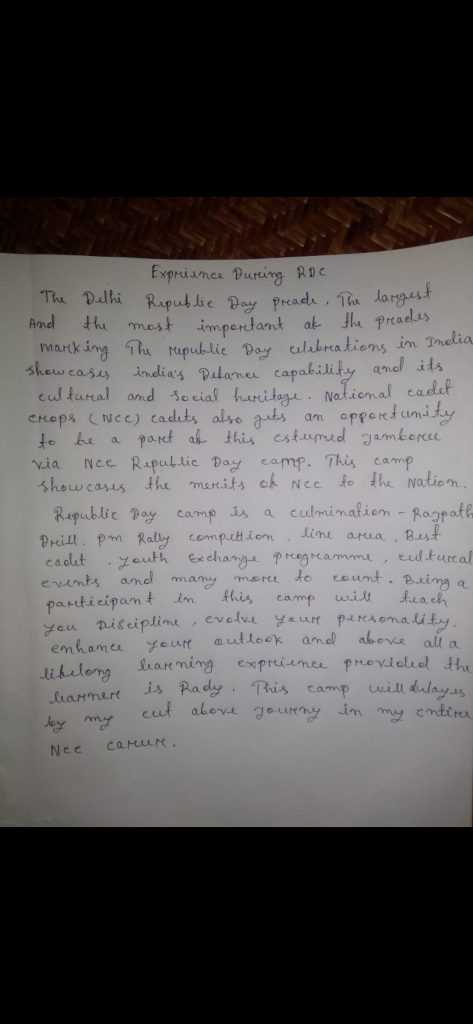 Exprience During RDC
The Delhi Republic Day prade. The largest
And the most important ab the prades
marking The republic Day celebrations in India
showcases india's Debance capability and its
cultural and Social heritage. National cadet
crops (NCC) cadets also gets an opportunity
to be a part ab this estumed Jamboree
via NCC Republic Day camp. This camp
showcases the merits ob NCC to the Nation.
Republic Day camp is a culmination - Rajpath
Drill. pm Rally compettion, line area, Best
cadet. Youth Exchange programme, cultural
events and many more to count. Being a
participant in this camp will teach
you Discipline, evolve your personality.
enhance your outlook and above all a
libelong learning exprience provided the
learner is Rady. This camp will
by my cut above Journy in my entire
NCC career.